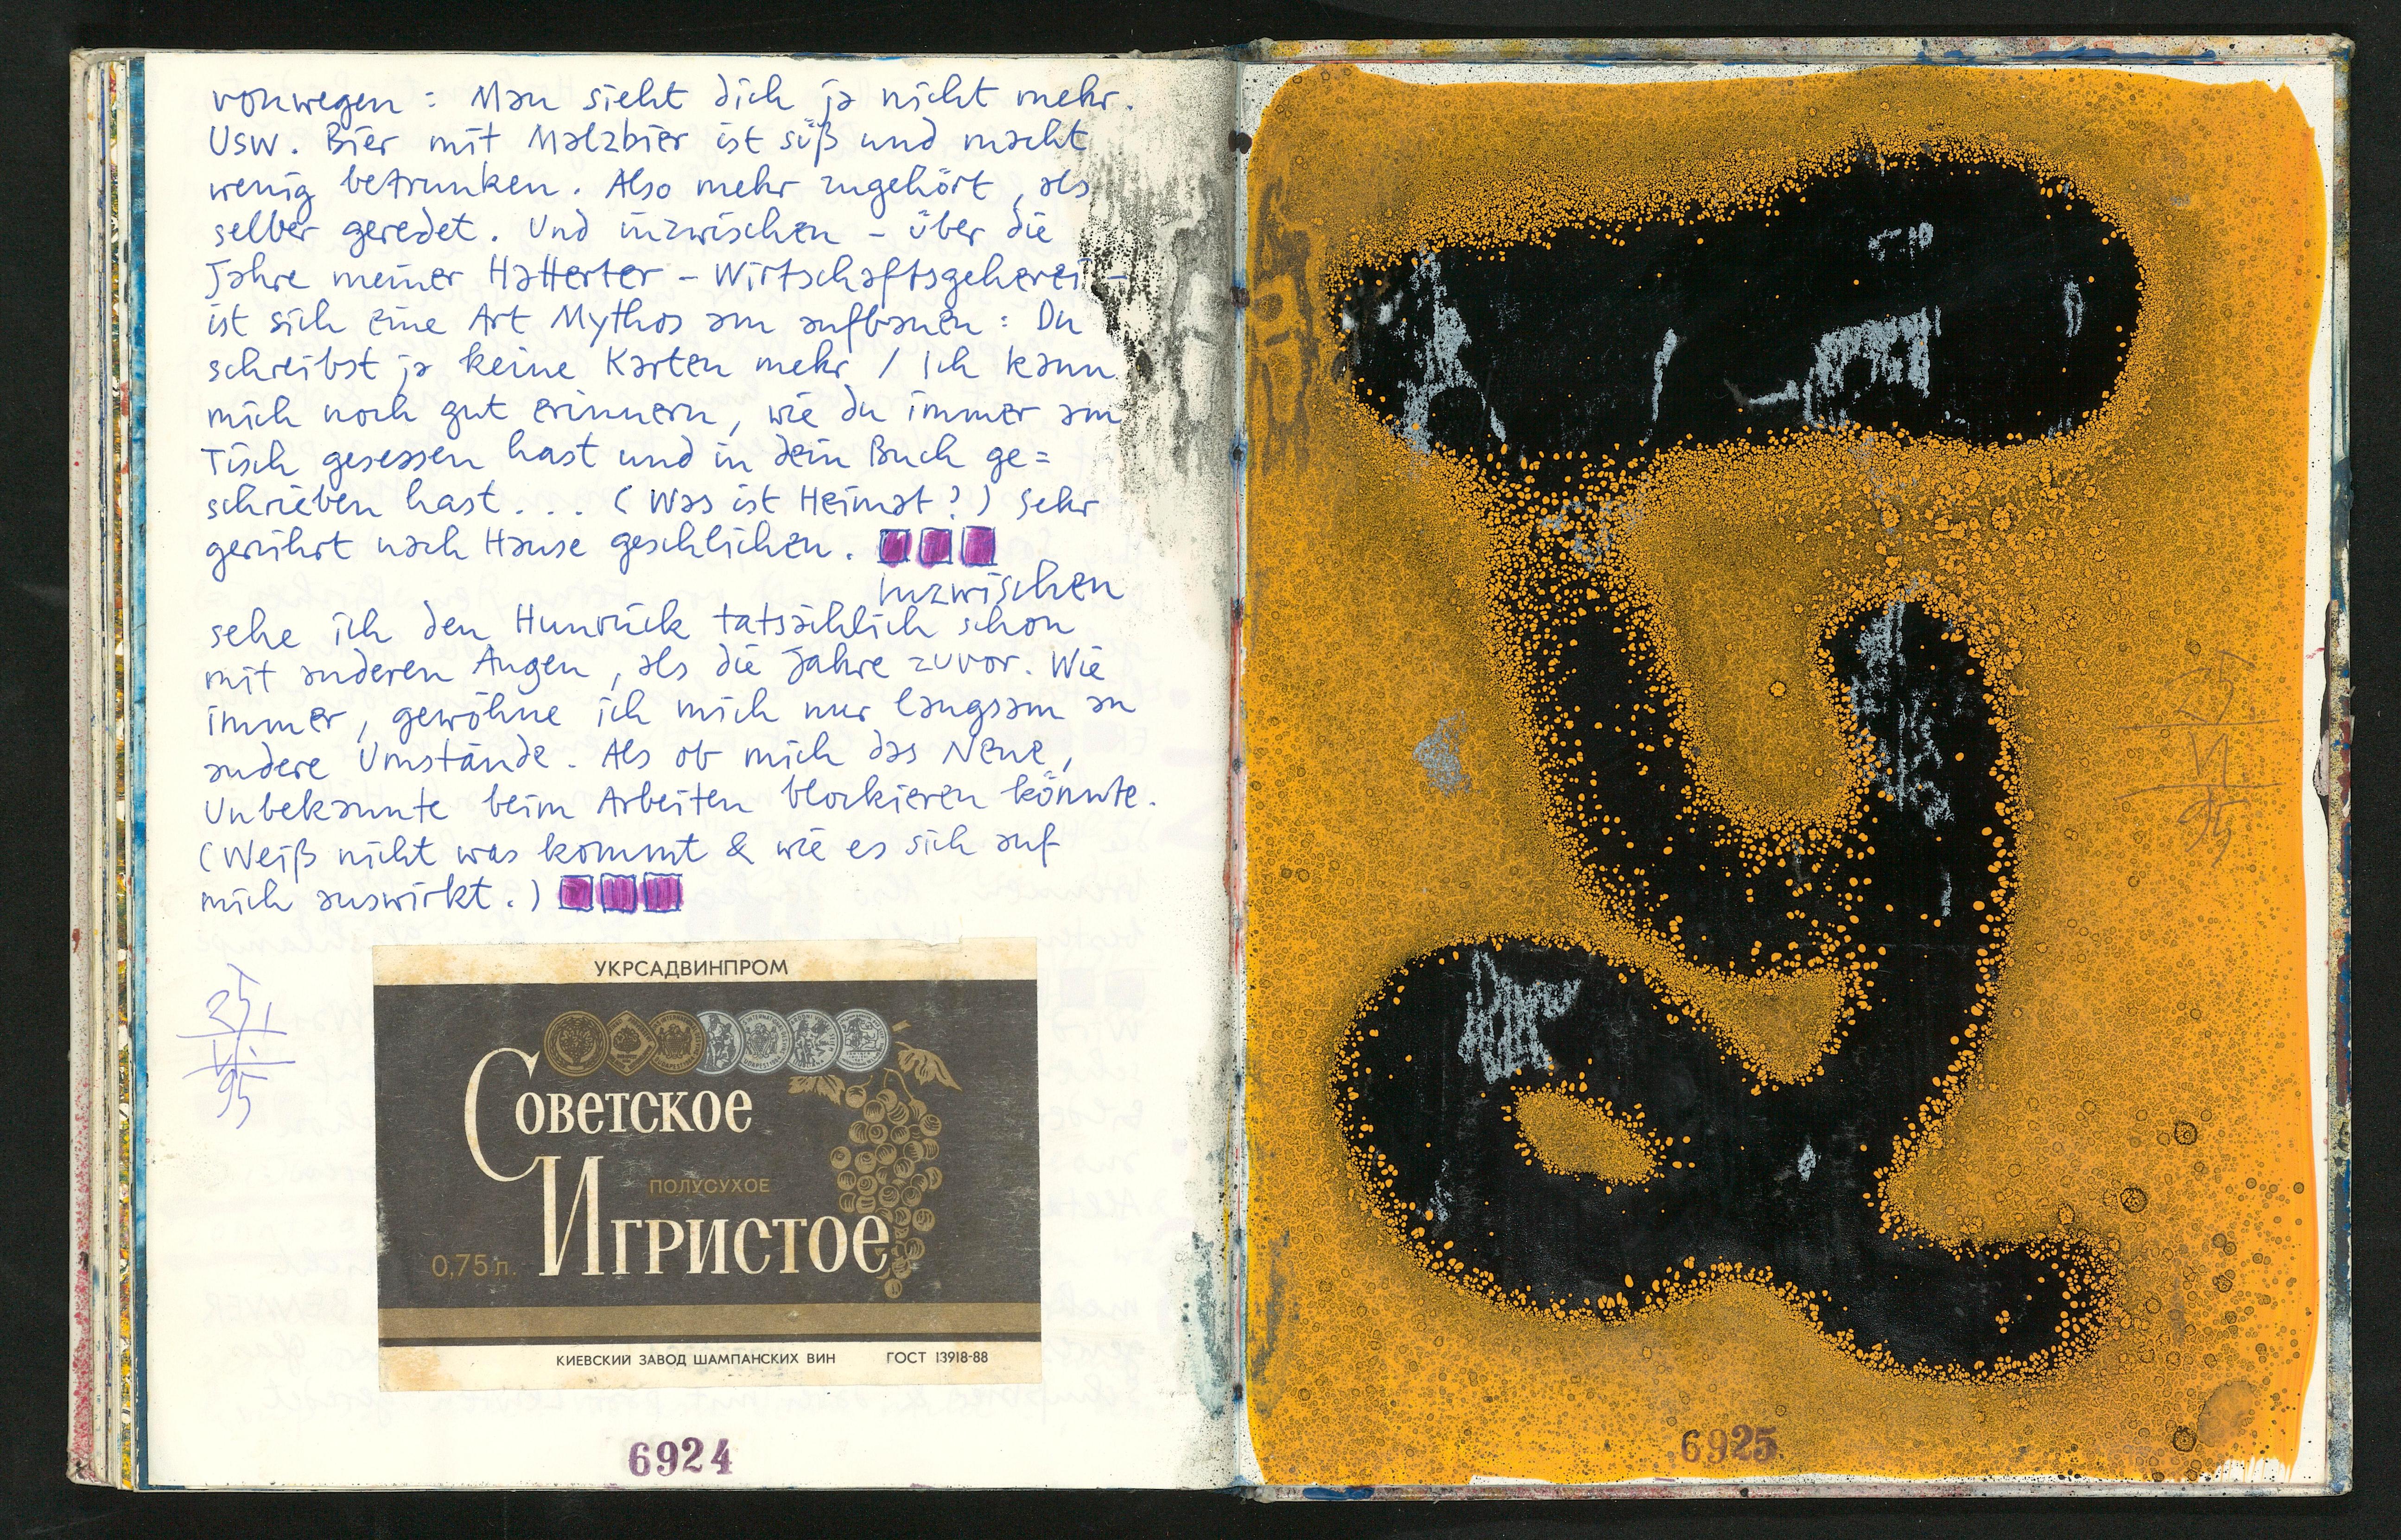 vonwegen : Man sieht dich ja nicht mehr.
Usw. Bier mit Malzbier ist süß und macht
wenig betrunken. Also mehr zugehört, als
selber geredet. Und inzwischen - über die
Jahre meiner Hatterter - Wirtschaftsgeherei -
ist sich eine Art Mythos am aufbauen : Du
schreibst ja keine Karten mehr / Ich kann
mich noch gut erinnern, wie du immer am
Tisch gesessen hast und in dein Buch ge=
schrieben hast . . . (Was ist Heimat?) Sehr
gerührt nach Hause geschlichen.
Inzwischen
sehe ich den Hunrück tatsächlich schon
mit anderen Augen, als die Jahre zuvor. Wie
immer, gewöhne ich mich nur langsam an
andere Umstände. Als ob mich das Neue,
Unbekannte beim Arbeiten blockieren könnte.
(Weiß nicht was kommt & wie es sich auf
mich auswirkt.)
25
VI
95
УКРСАДВИНПРОМ
Советское
полусухое
Игристое
0,75 л.
КИЕВСКИЙ ЗАВОД ШАМПАНСКИХ ВИН ГОСТ 13918-88
6924
25
VI
95
6925